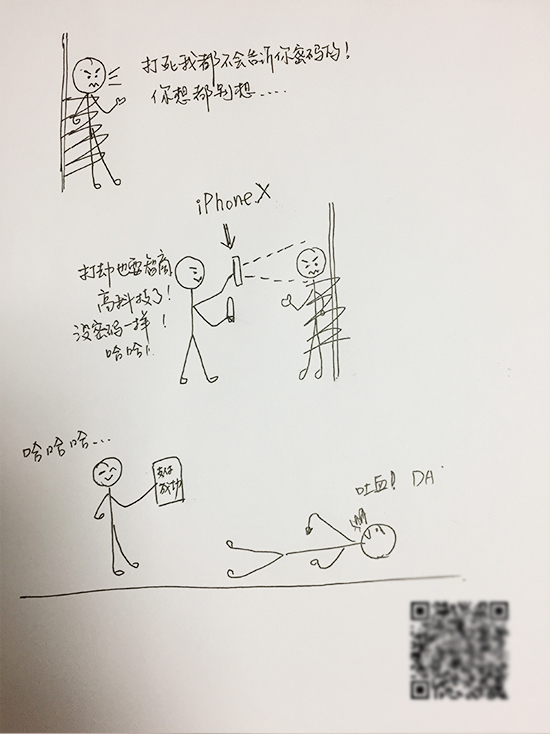 打死我都不会告诉你密码的!
你想都别想.....
iPhone X
打劫也需智商
高科技了!
没密码一样!
哈哈!
哈哈哈...
支付
成功
吐血! DA